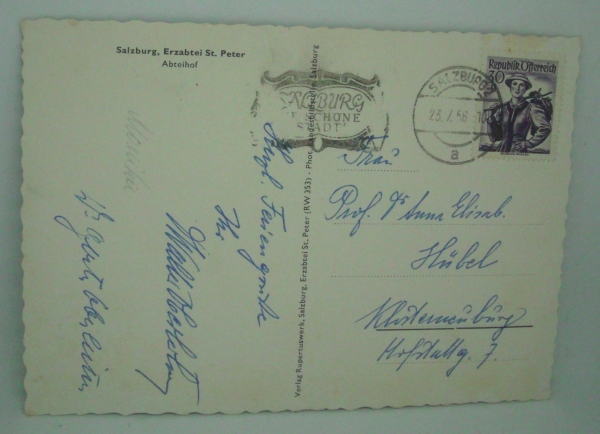 Salzburg, Erzabtei St. Peter
Abteihof
Herzl. Feriengrüße
Ihr
Monika
Verlag Rupertuswerk, Salzburg, Erzabtei St. Peter (RW 353) - Phot. Salzburg
SALZBURG
DIE SCHÖNE
STADT
SALZBURG 2
23.7.56
a
Republik Österreich
30
Frau
Prof. Dr Anna Elisab.
Hübel
Klosterneuburg
Hofstattg. 7.